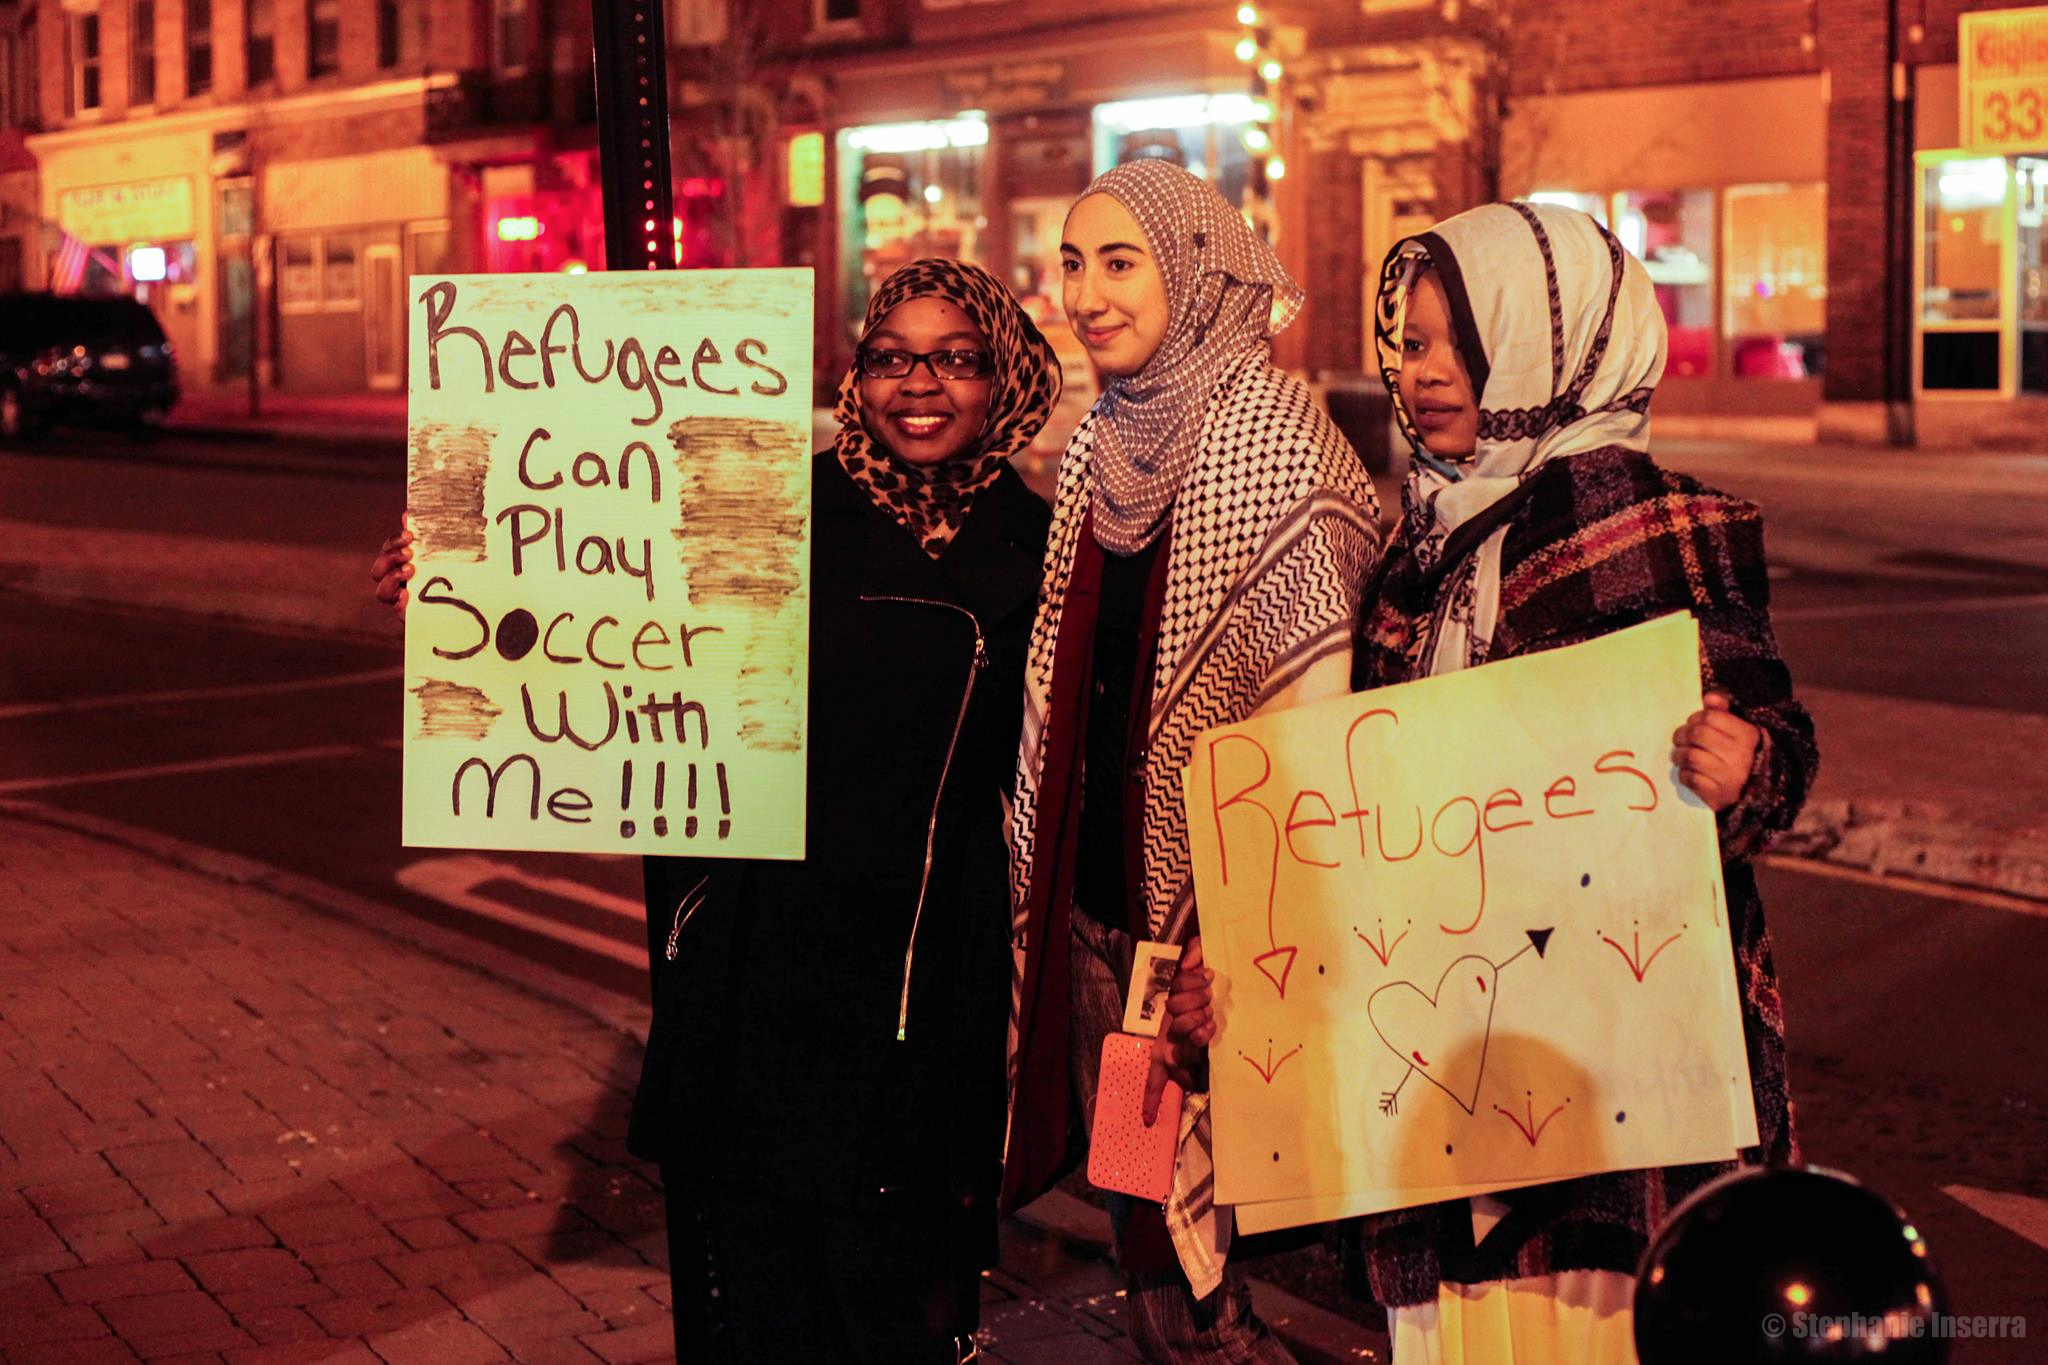 Refugees
Can
Play
Soccer
With
Me!!!!
Refugees
33
© Stephanie Inserra